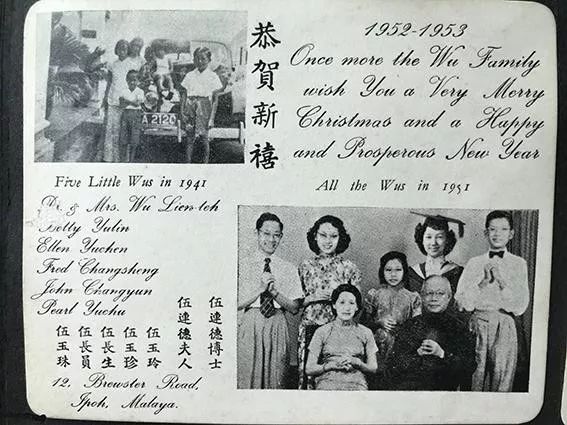 恭賀新禧
1952-1953
Once more the Wu Family
wish You a Very Merry
Christmas and a Happy
and Prosperous New Year
Five Little Wus in 1941
Dr. & Mrs. Wu Lien-teh
Betty Yulin
Ellen Yuchen
Fred Changsheng
John Changyun
Pearl Yuchu
伍連德博士
伍連德夫人
伍玉玲
伍玉珍
伍長生
伍長員
伍玉珠
12, Brewster Road,
Ipoh, Malaya.
All the Wus in 1951